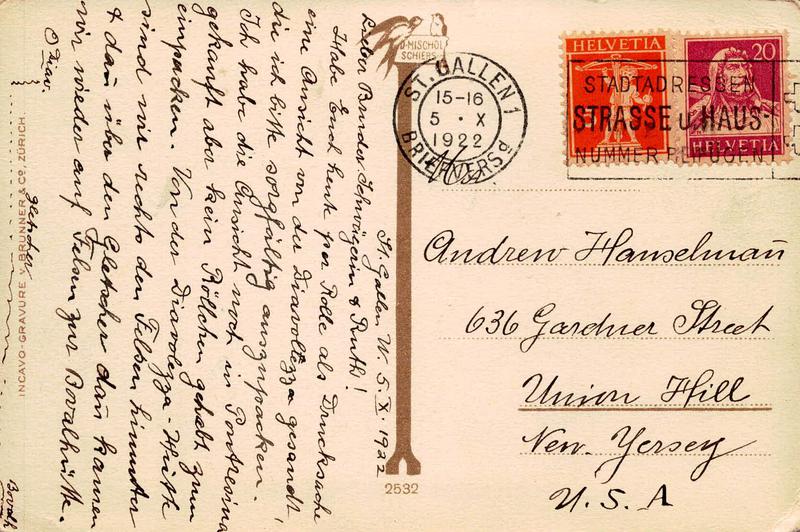 St. Gallen W. 5. X 1922
Lieber Bruder, Schwägerin & Ruth!
Habe Euch heute per Rolle als Drucksache
eine Ansicht von der Diavolezza gesandt,
die ich bitte sorgfältig auszupacken.
Ich habe die Ansicht noch in Pontresina
gekauft aber kein Röllchen gehabt zum
einpacken. Von der Diavolezza-Hütte
sind wir rechts den Felsen hinunter
& dan über den Gletscher dan kamen
wir wieder auf Felsen zur Bovalhütte.
Gletscher
INCAVO-GRAVURE V. BRUNNER & Co., ZÜRICH.
D. MISCHOL
SCHIERS
2532
ST. GALLEN 1
15-16
5 · X
1922
BRIEFVERSd
HELVETIA
5
20
HELVETIA
STADTADRESSEN
STRASSE u. HAUS-
NUMMER BEIFÜGEN!
Andrew Hanselmañ
636 Gardner Street
Union Hill
New Yersey
U. S. A